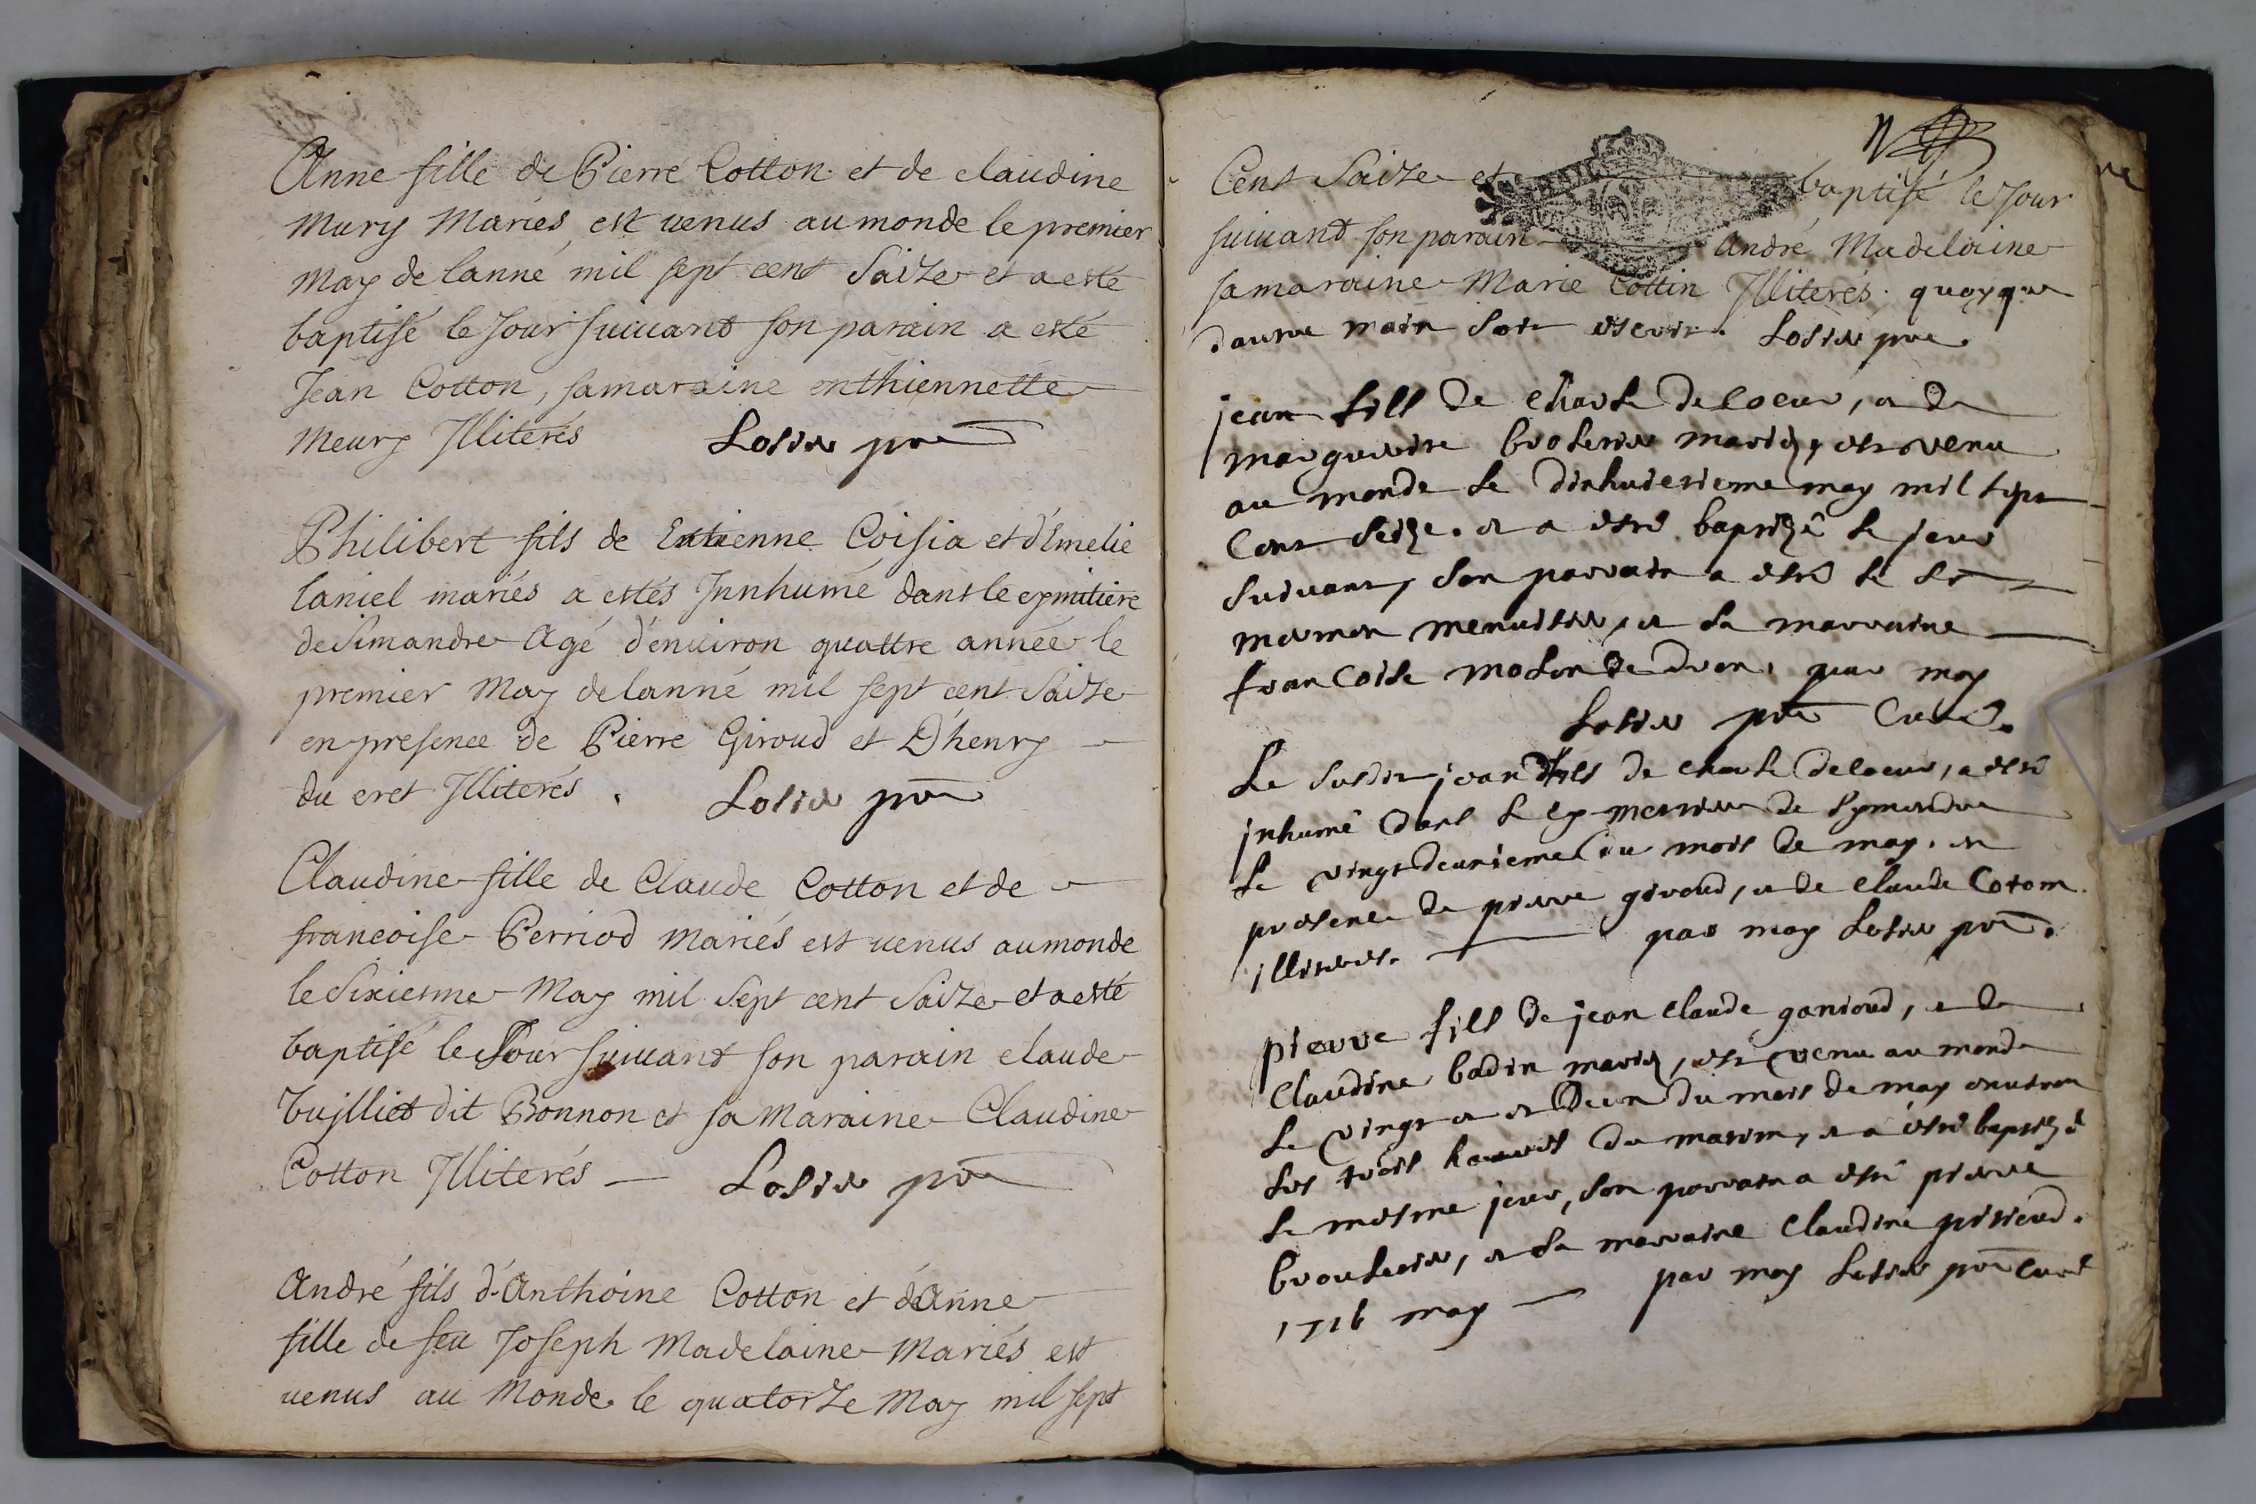 Anne fille de Pierre Cotton et de claudine
Mury Mariés est venus au monde le premier
May de lanné mil sept cent Saize et a esté
baptisé le Jour suivant son parain a esté
Jean Cotton, samaraine enthiennette
Meury Illiterés Losier pre
Philibert fils de Estienne Coisia et d'Emelie
laniel mariés a estés Jnnhumé dans le cymitiere
de Simandre Agé d'environ quattre année le
premier May delanné mil sept cent Saize
en presence de Pierre Giroud et D'henry
du cret Illiterés. Losier pre
Claudine fille de Claude Cotton et de
francoise Perriod Mariés est venus aumonde
le Sixiesme May mil Sept cent Saize et a esté
baptisé le Jour suivant son parain claude
Vuilliet dit Bonnon et sa Maraine Claudine
Cotton Illiterés Losier pre
André fils d'Anthoine Cotton et d'Anne
fille de feu Joseph Madelaine Mariés est
venus au Monde le quatorze May mil sept
Cent Saize et baptisé le Jour
suivant son parain André Madelaine
samaraine Marie Cottin Illiterés. quoyque
dautre main soit escrit. Losier pre
jean fils de charle deloeur, et de
marguerite brolerier mariez, est venu
au monde le dixhuitiesieme may mil sept
Cent Seize. et a estré baptizé le jour
suivant, son parrain a estré le Sr
mermon menuisier, et la marraine
francoise par moy
Losier pre Curé.
Le susdit jean fils de charle deloeur, a estré
jnhumé dans le cymetiere de Symandre
le vingtdeuxieme du mois de may. en
presence de pierre giroud, et de claude Cotom
illiteres. par moy Losier pre.
pierre fils de jean claude ganioud, et de
Claudine badin mariez, est venu au monde
le vingt et et deux du mois de may environ
les trois heures du matin, et a estré baptizé
le mesme jour, son parrain a estré pierre
broulerier, et la marraine Claudine perrioud.
1716 may par moy Losier pre curé